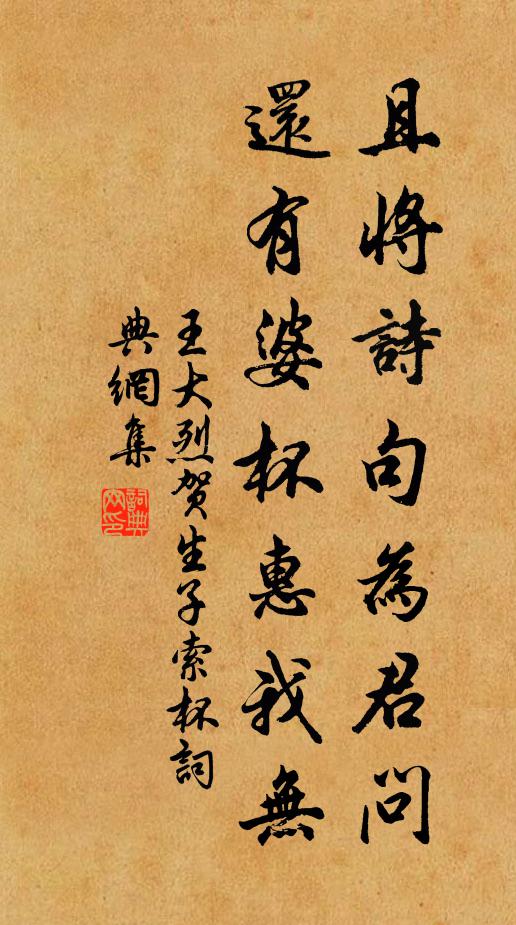 且將詩句為君問
還有婆杯惠我無
王大烈贺生子索杯詞
典網集
詞典
网印